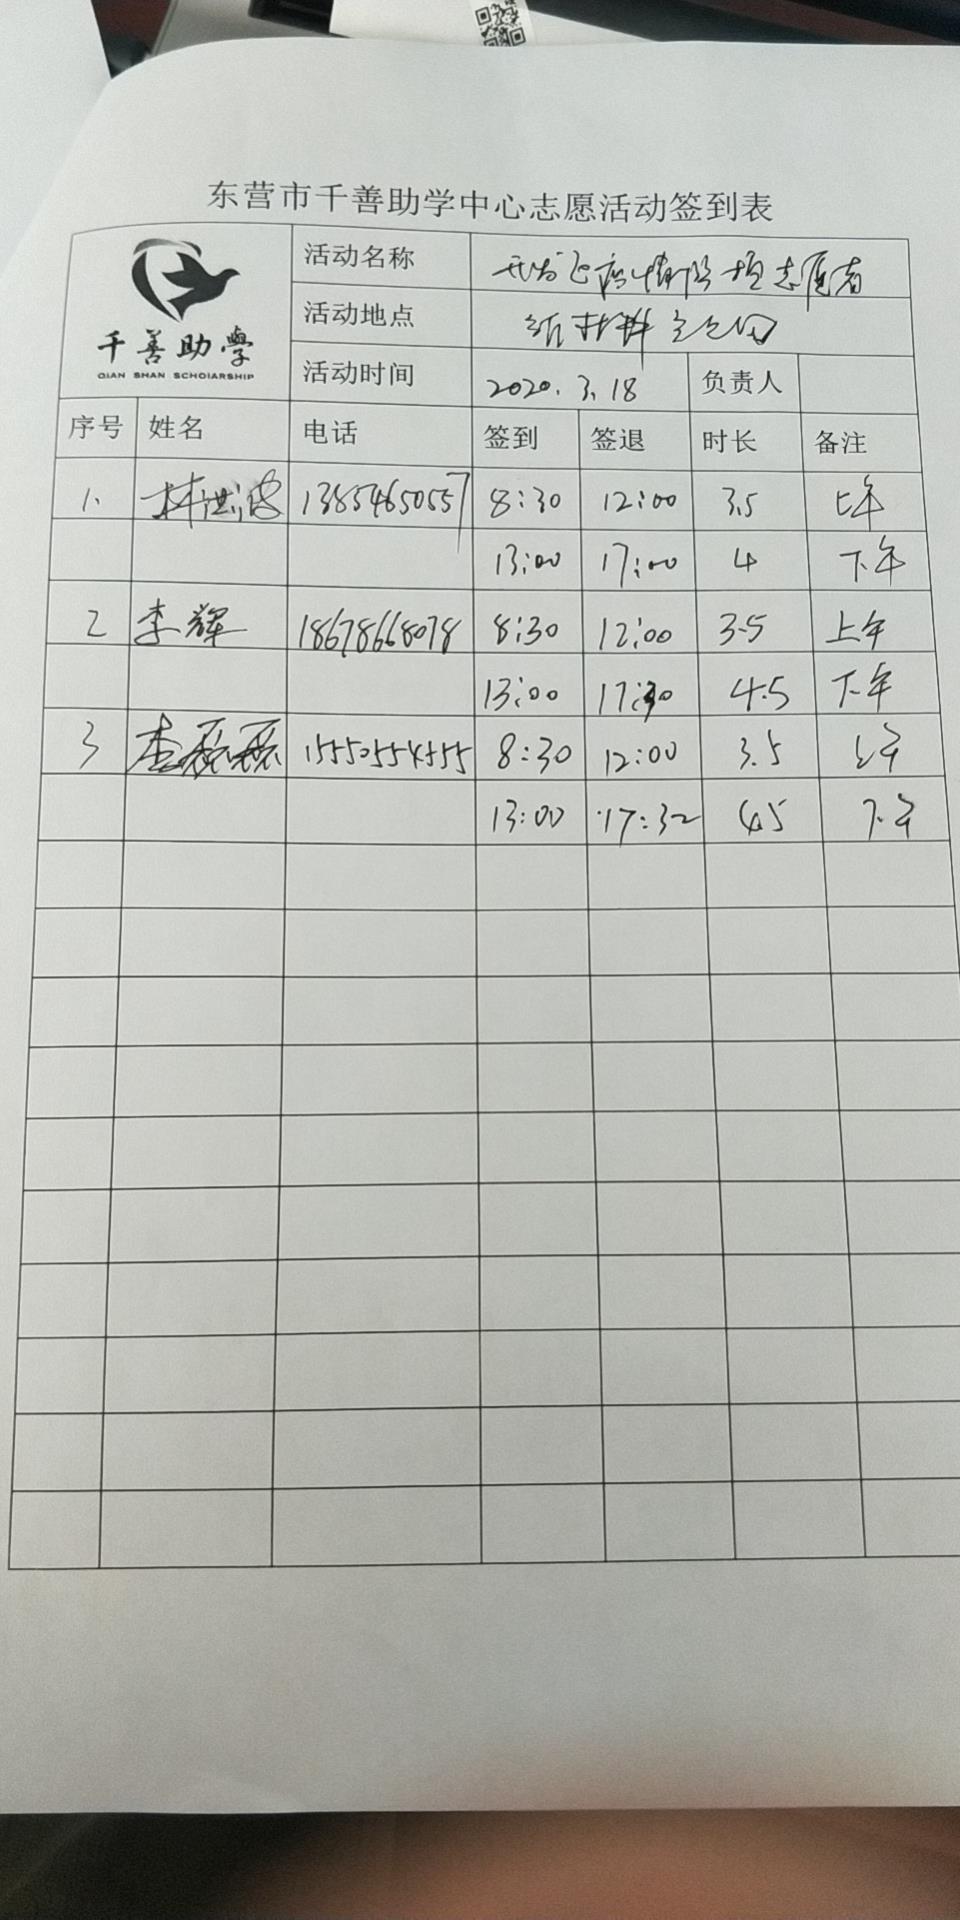 东营市千善助学中心志愿活动签到表
千善助學
QIAN SHAN SCHOIARSHIP
活动名称 疫情防控志愿者
活动地点 新材料
活动时间 2020.3.18 负责人
序号 姓名 电话 签到 签退 时长 备注
1. 林洪波 13854650557 8:30 12:00 3.5 上午
13:00 17:00 4 下午
2 李辉 18678668078 8:30 12:00 3.5 上午
13:00 17:30 4.5 下午
3 李磊磊 15550554555 8:30 12:00 3.5 上午
13:00 17:32 4.5 下午